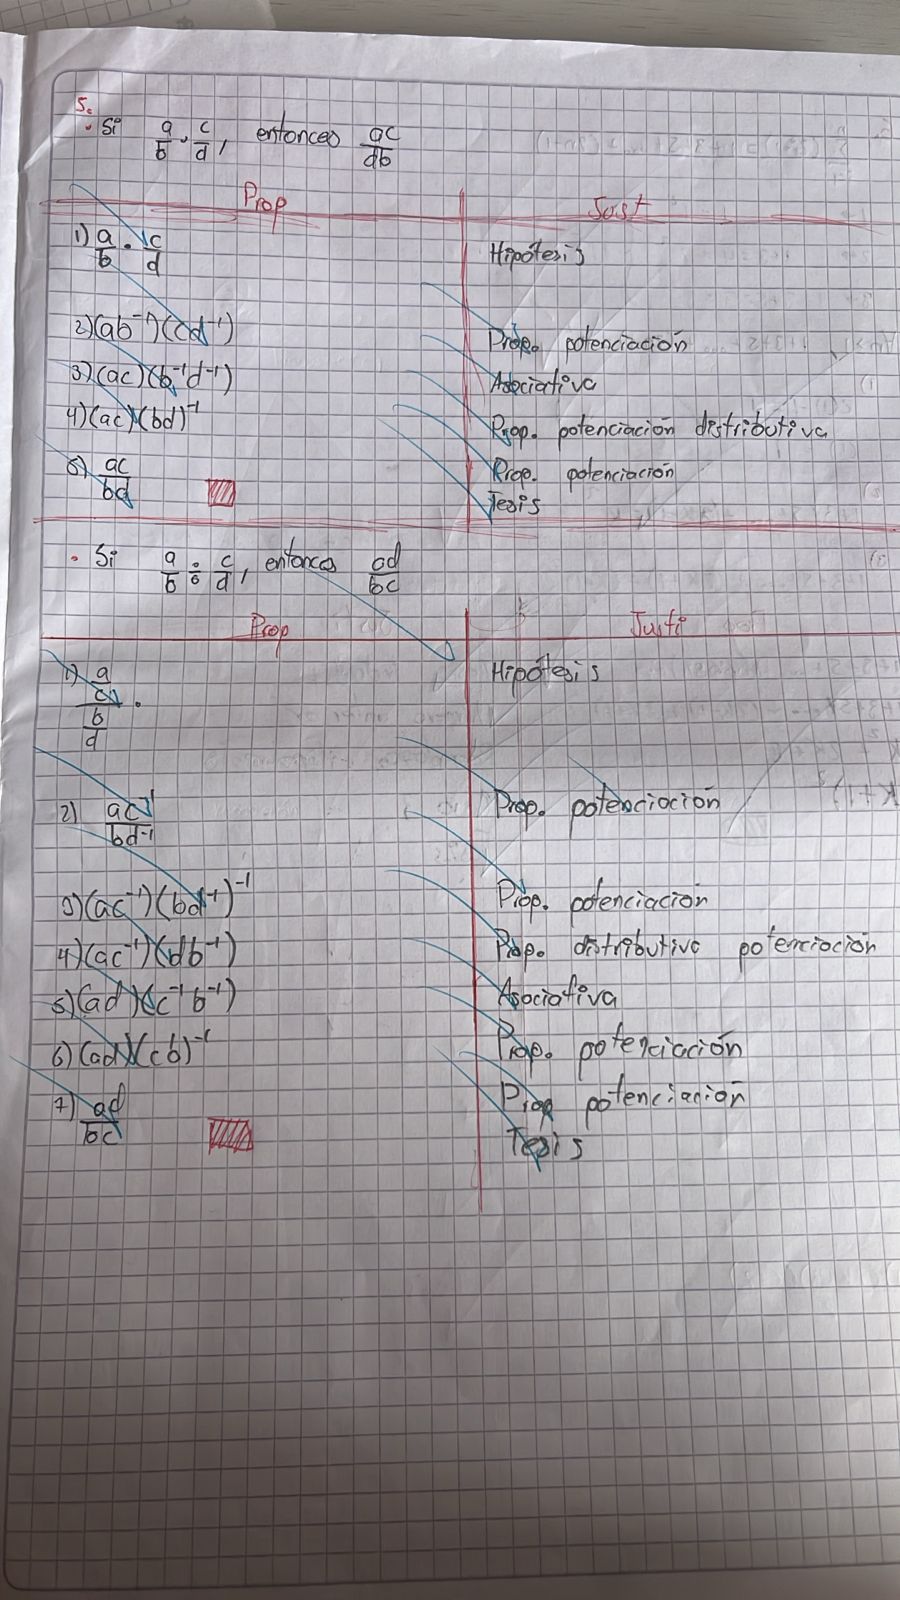 5.
· Si a/b · c/d, entonces ac/db
Prop Just
1) a/b · c/d Hipótesis
2) (ab⁻¹)(cd⁻¹) Prop. potenciación
3) (ac)(b⁻¹d⁻¹) Asociativa
4) (ac)(bd)⁻¹ Prop. potenciación distributiva
5) ac/bd Prop. potenciación
Tesis
· Si a/b ÷ c/d, entonces ad/bc
Prop Justi
1) (a/c)/(b/d) · Hipótesis
2) ac⁻¹/bd⁻¹ Prop. potenciación
3) (ac⁻¹)(bd⁻¹)⁻¹ Prop. potenciación
4) (ac⁻¹)(db⁻¹) Prop. distributiva potenciación
5) (ad)(c⁻¹b⁻¹) Asociativa
6) (ad)(cb)⁻¹ Prop. potenciación
7) ad/bc Prop potenciación
Tesis